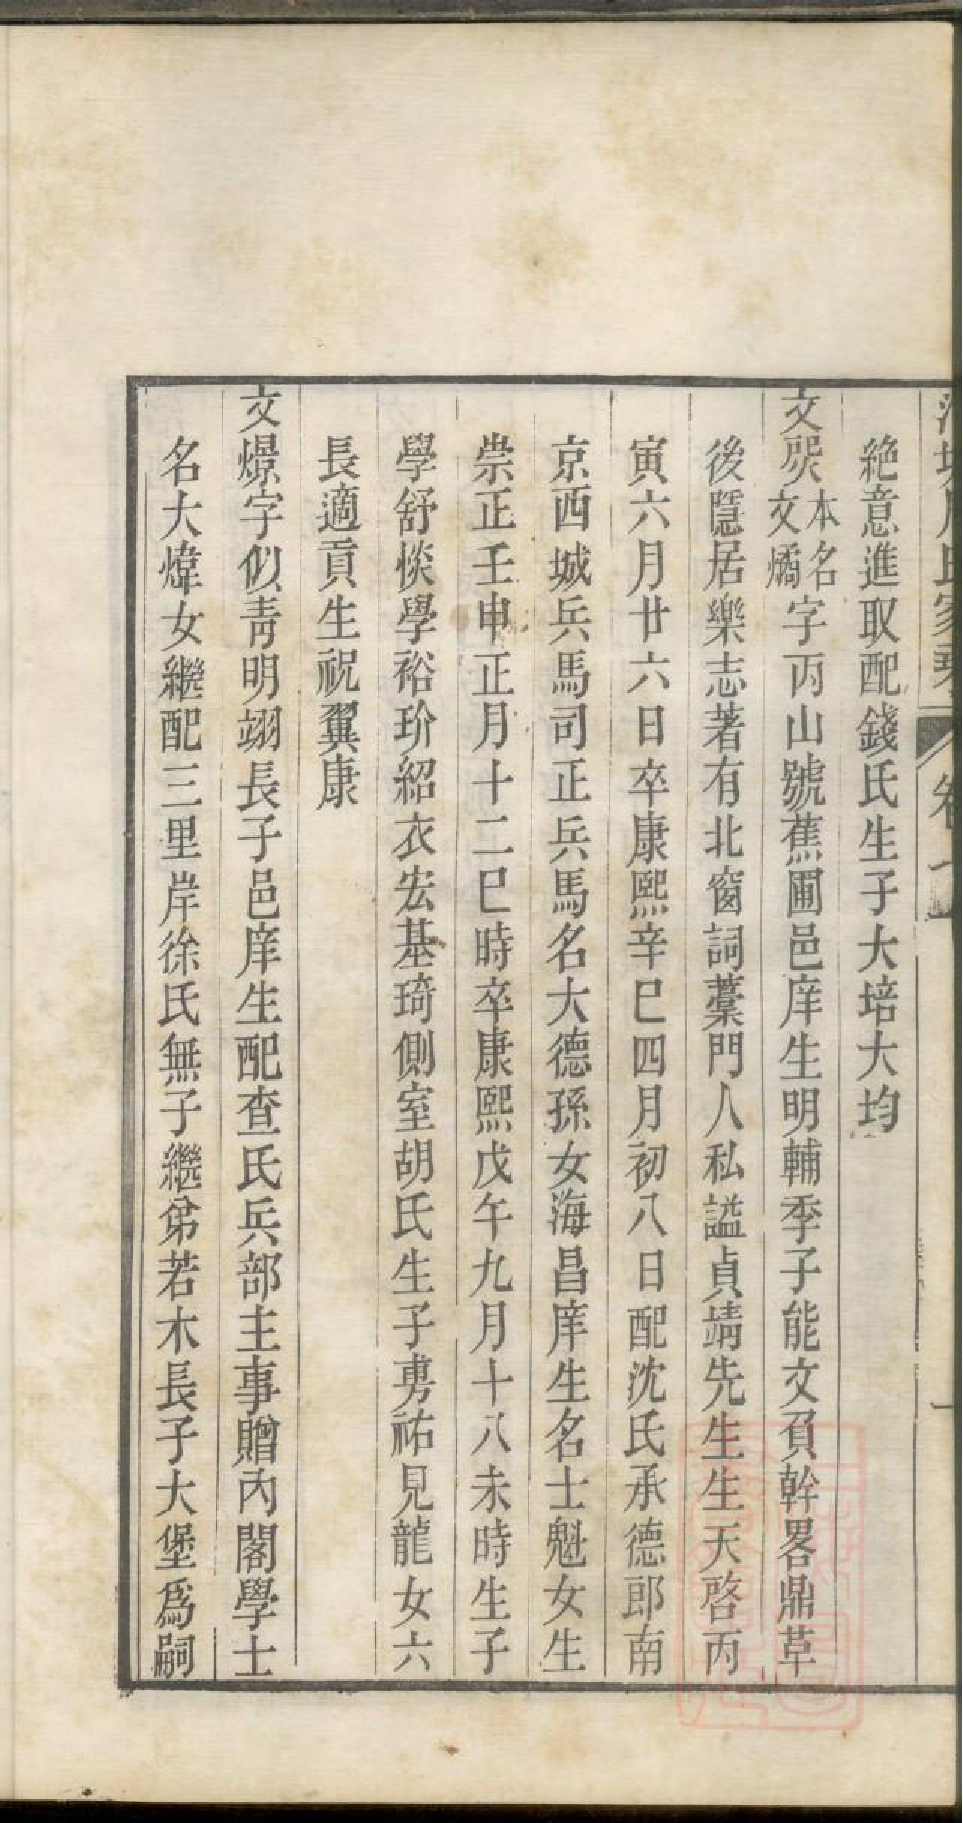 周氏家乘 卷 一
絶意進取配錢氏生子大培大均
文炅本名文燏字丙山號蕉圃邑庠生明輔季子能文負幹畧鼎草
後隱居樂志著有北窗詞藁門人私謚貞靖先生生天啓丙
寅六月廿六日卒康熙辛巳四月初八日配沈氏承德郎南
京西城兵馬司正兵馬名大德孫女海昌庠生名士魁女生
崇正壬申正月十二巳時卒康熙戊午九月十八未時生子
學舒惔學裕玠紹衣宏基琦側室胡氏生子旉祐見龍女六
長適貢生祝翼康
文燝字似靑明翊長子邑庠生配查氏兵部主事贈內閣學士
名大煒女繼配三里岸徐氏無子繼弟若木長子大堡爲嗣